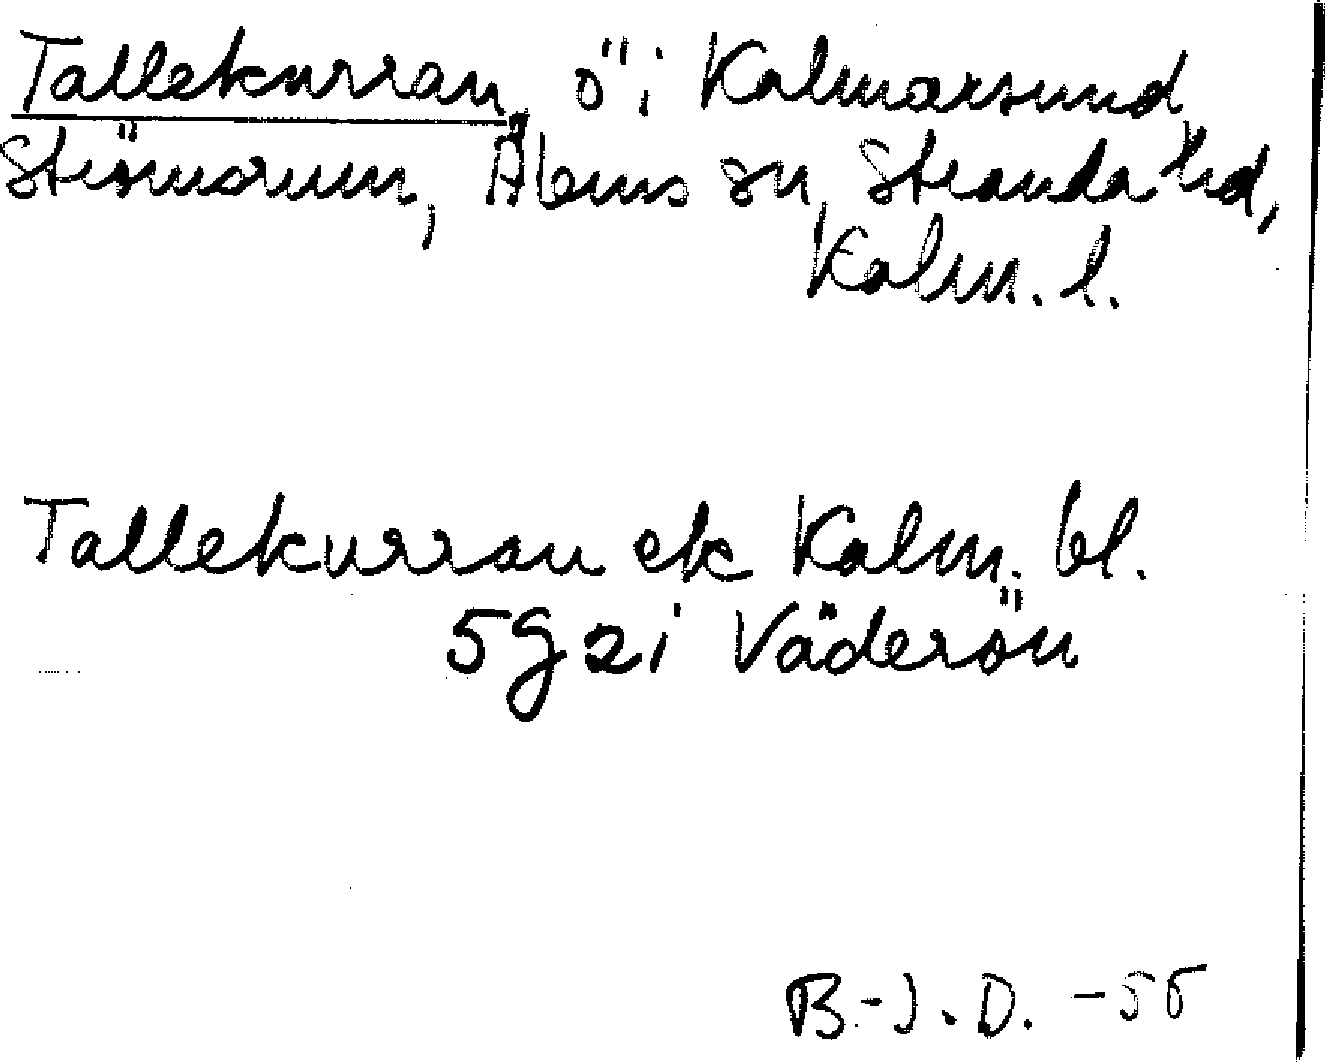 Tallekurran, ö i Kalmarsund,
Strömsrum, Ålems sn, Stranda hd,
Kalm. l.
Tallekurran ek Kalm. bl.
5 G 2 i Väderön
B.-J. D. -55